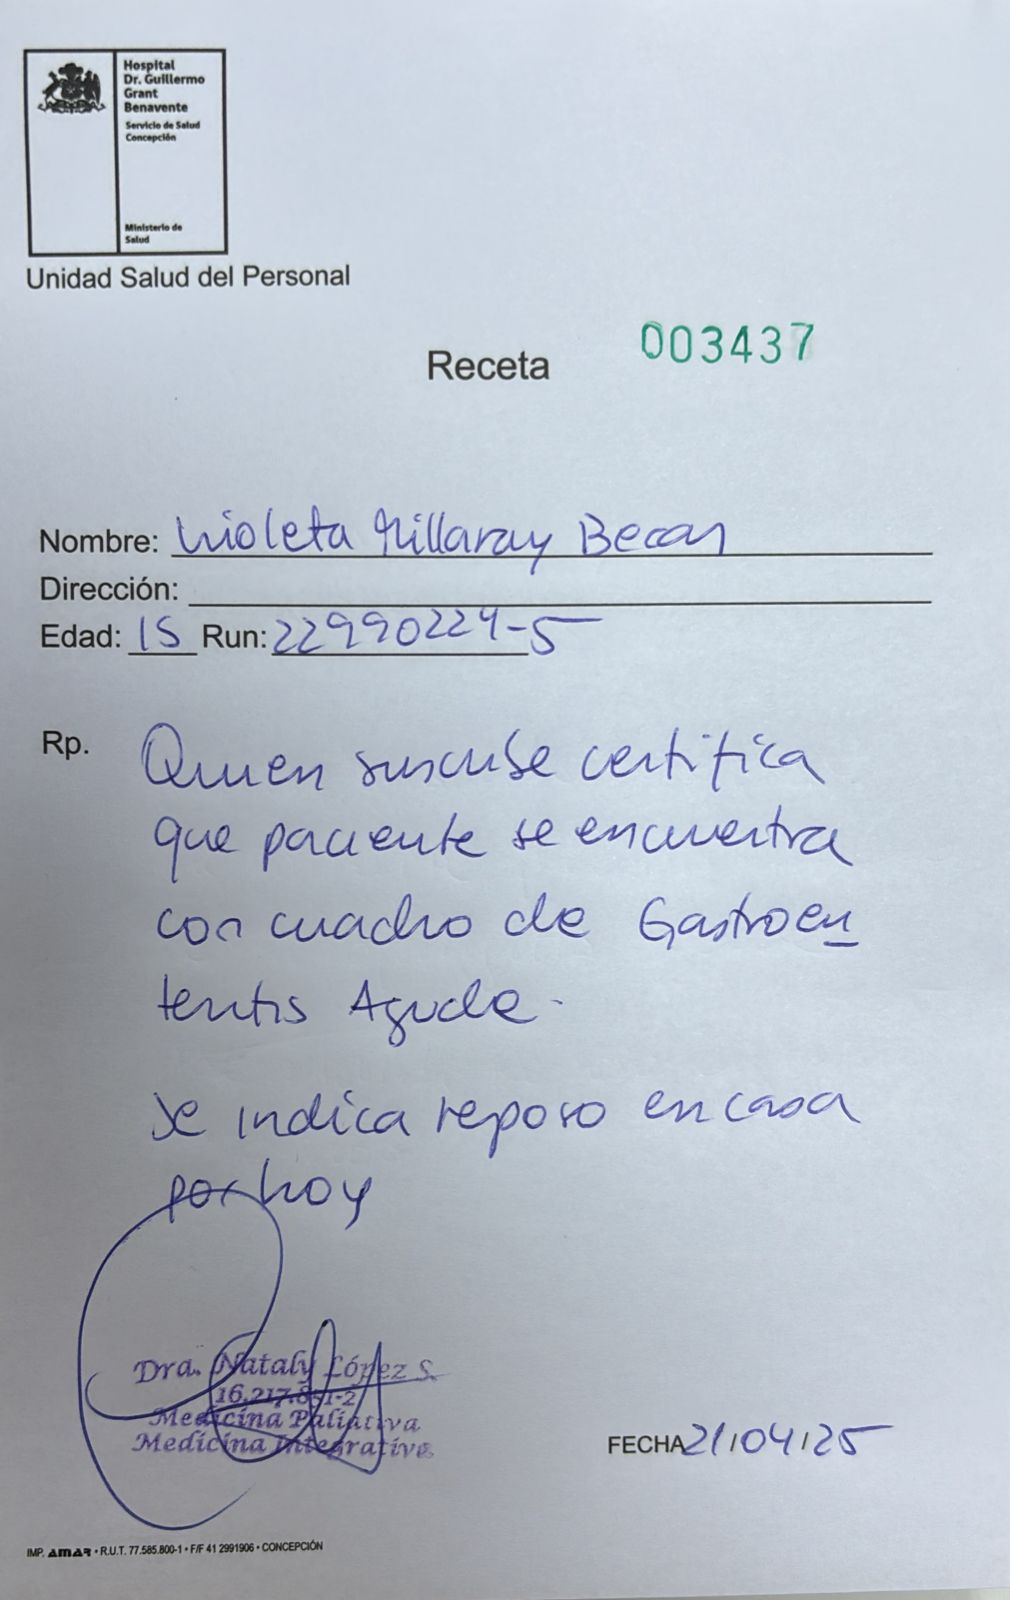 Hospital
Dr. Guillermo
Grant
Benavente
Servicio de Salud
Concepción
Ministerio de
Salud
Unidad Salud del Personal
Receta 003437
Nombre: Violeta Millaray
Dirección:
Edad: 15 Run: 22990224-5
Rp. Quien suscribe certifica
que paciente se encuentra
con cuadro de Gastroen
teritis Aguda.
Se indica reposo en casa
por hoy
Dra. Nataly López S.
Medicina Paliativa
Medicina Integrativa
FECHA 21/04/25
IMP. AMAR • R.U.T. 77.585.800-1 • F/F 41 2991906 • CONCEPCIÓN